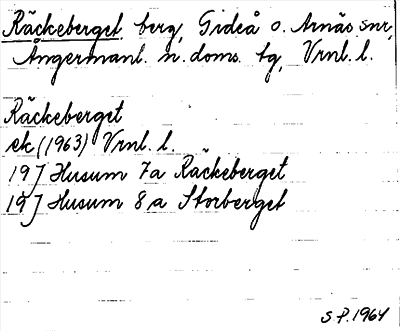 Räckeberget, berg, Gideå o. Arnäs snr,
Ångermanl. n. doms. tg, Vrnl. l.
Räckeberget
ek (1963) Vrnl. l.
19J Husum 7a Räckeberget
19J Husum 8a Storberget
S.P. 1964